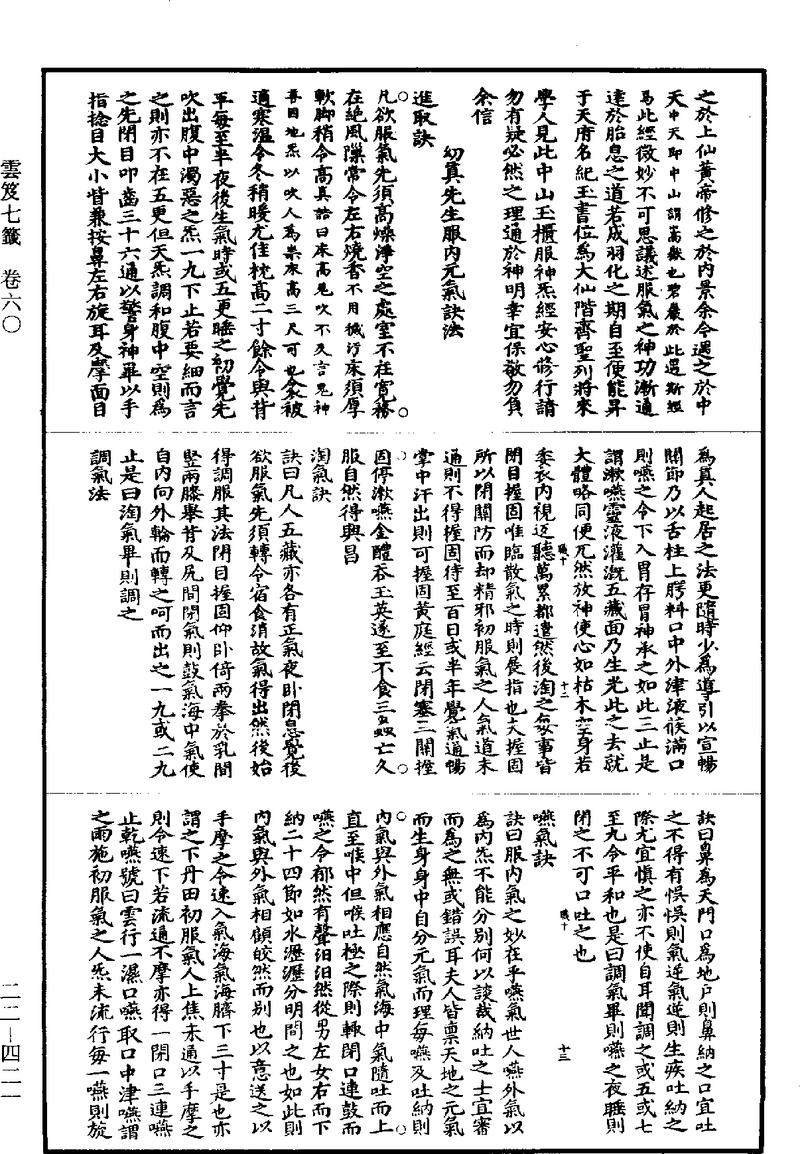 之於上仙黃帝修之於內景余今遇之於中
天中天即中山謂嵩嶽也碧巖於此遇斯經
焉此經微妙不可思議述服氣之神功漸通
達於胎息之道若成羽化之期自至使能昇
于天府名紀玉書位為大仙階齊聖列將來
學人見此中山玉櫃服神炁經安心修行請
勿有疑必然之理通於神明幸宜保敬勿負
余信
幻真先生服內元氣訣法
進取訣
凡欲服氣先須高燥淨空之處室不在寬務
在絕風隟常令左右燒香不用穢污床須厚
軟脚稍令高真誥曰床高鬼吹不及言鬼神
善因地炁以吹人為祟床高三尺可也衾被
適寒溫令冬稍暖尤佳枕高二寸餘令與背
平每至半夜後生氣時或五更睡之初覺先
吹出腹中濁惡之炁一九下止若要細而言
之則亦不在五更但天炁調和腹中空則為
之先閉目叩齒三十六通以警身神畢以手
指捻目大小眥兼按鼻左右旋耳及摩面目
為真人起居之法更隨時少為導引以宣暢
關節乃以舌柱上腭料口中外津液候滿口
則嚥之令下入胃存胃神承之如此三止是
謂漱嚥靈液灌溉五藏面乃生光此之去就
大體略同便兀然放神使心如枯木空身若
委衣內視返聽萬累都遣然後淘之每事皆
閉目握固唯臨散氣之時則展指也夫握固
所以閉關防而却精邪初服氣之人氣道未
通則不得握固待至百日或半年覺氣通暢
掌中汗出則可握固黃庭經云閉塞三關握
固停漱嚥金醴吞玉英遂至不食三蟲亡久
服自然得興昌
淘氣訣
訣曰凡人五藏亦各有正氣夜卧閉息覺後
欲服氣先須轉令宿食消故氣得出然後始
得調服其法閉目握固仰卧倚兩拳於乳間
豎兩膝舉背及尻間閉氣則鼓氣海中氣使
自內向外輪而轉之呵而出之一九或二九
止是曰淘氣畢則調之
調氣法
訣曰鼻為天門口為地户則鼻納之口宜吐
之不得有悞悞則氣逆氣逆則生疾吐納之
際尤宜慎之亦不使自耳聞調之或五或七
至九令平和也是曰調氣畢則嚥之夜睡則
閉之不可口吐之也
嚥氣訣
訣曰服內氣之妙在乎嚥氣世人嚥外氣以
為內炁不能分别何以談哉納吐之士宜審
而為之無或錯誤耳夫人皆禀天地之元氣
而生身身中自分元氣而理每嚥及吐納則
內氣與外氣相應自然氣海中氣隨吐而上
直至喉中但喉吐極之際則輙閉口連鼓而
嚥之令郁然有聲汩汩然從男左女右而下
納二十四節如水瀝瀝分明聞之也如此則
內氣與外氣相顧皎然而别也以意送之以
手摩之令速入氣海氣海臍下三寸是也亦
謂之下丹田初服氣人上焦未通以手摩之
則令速下若流通不摩亦得一閉口三連嚥
止乾嚥號曰雲行一濕口嚥取口中津嚥謂
之雨施初服氣之人炁未流行每一嚥則旋
職十 十二
職十 十三
雲笈七籤 卷六〇
二二—四二一